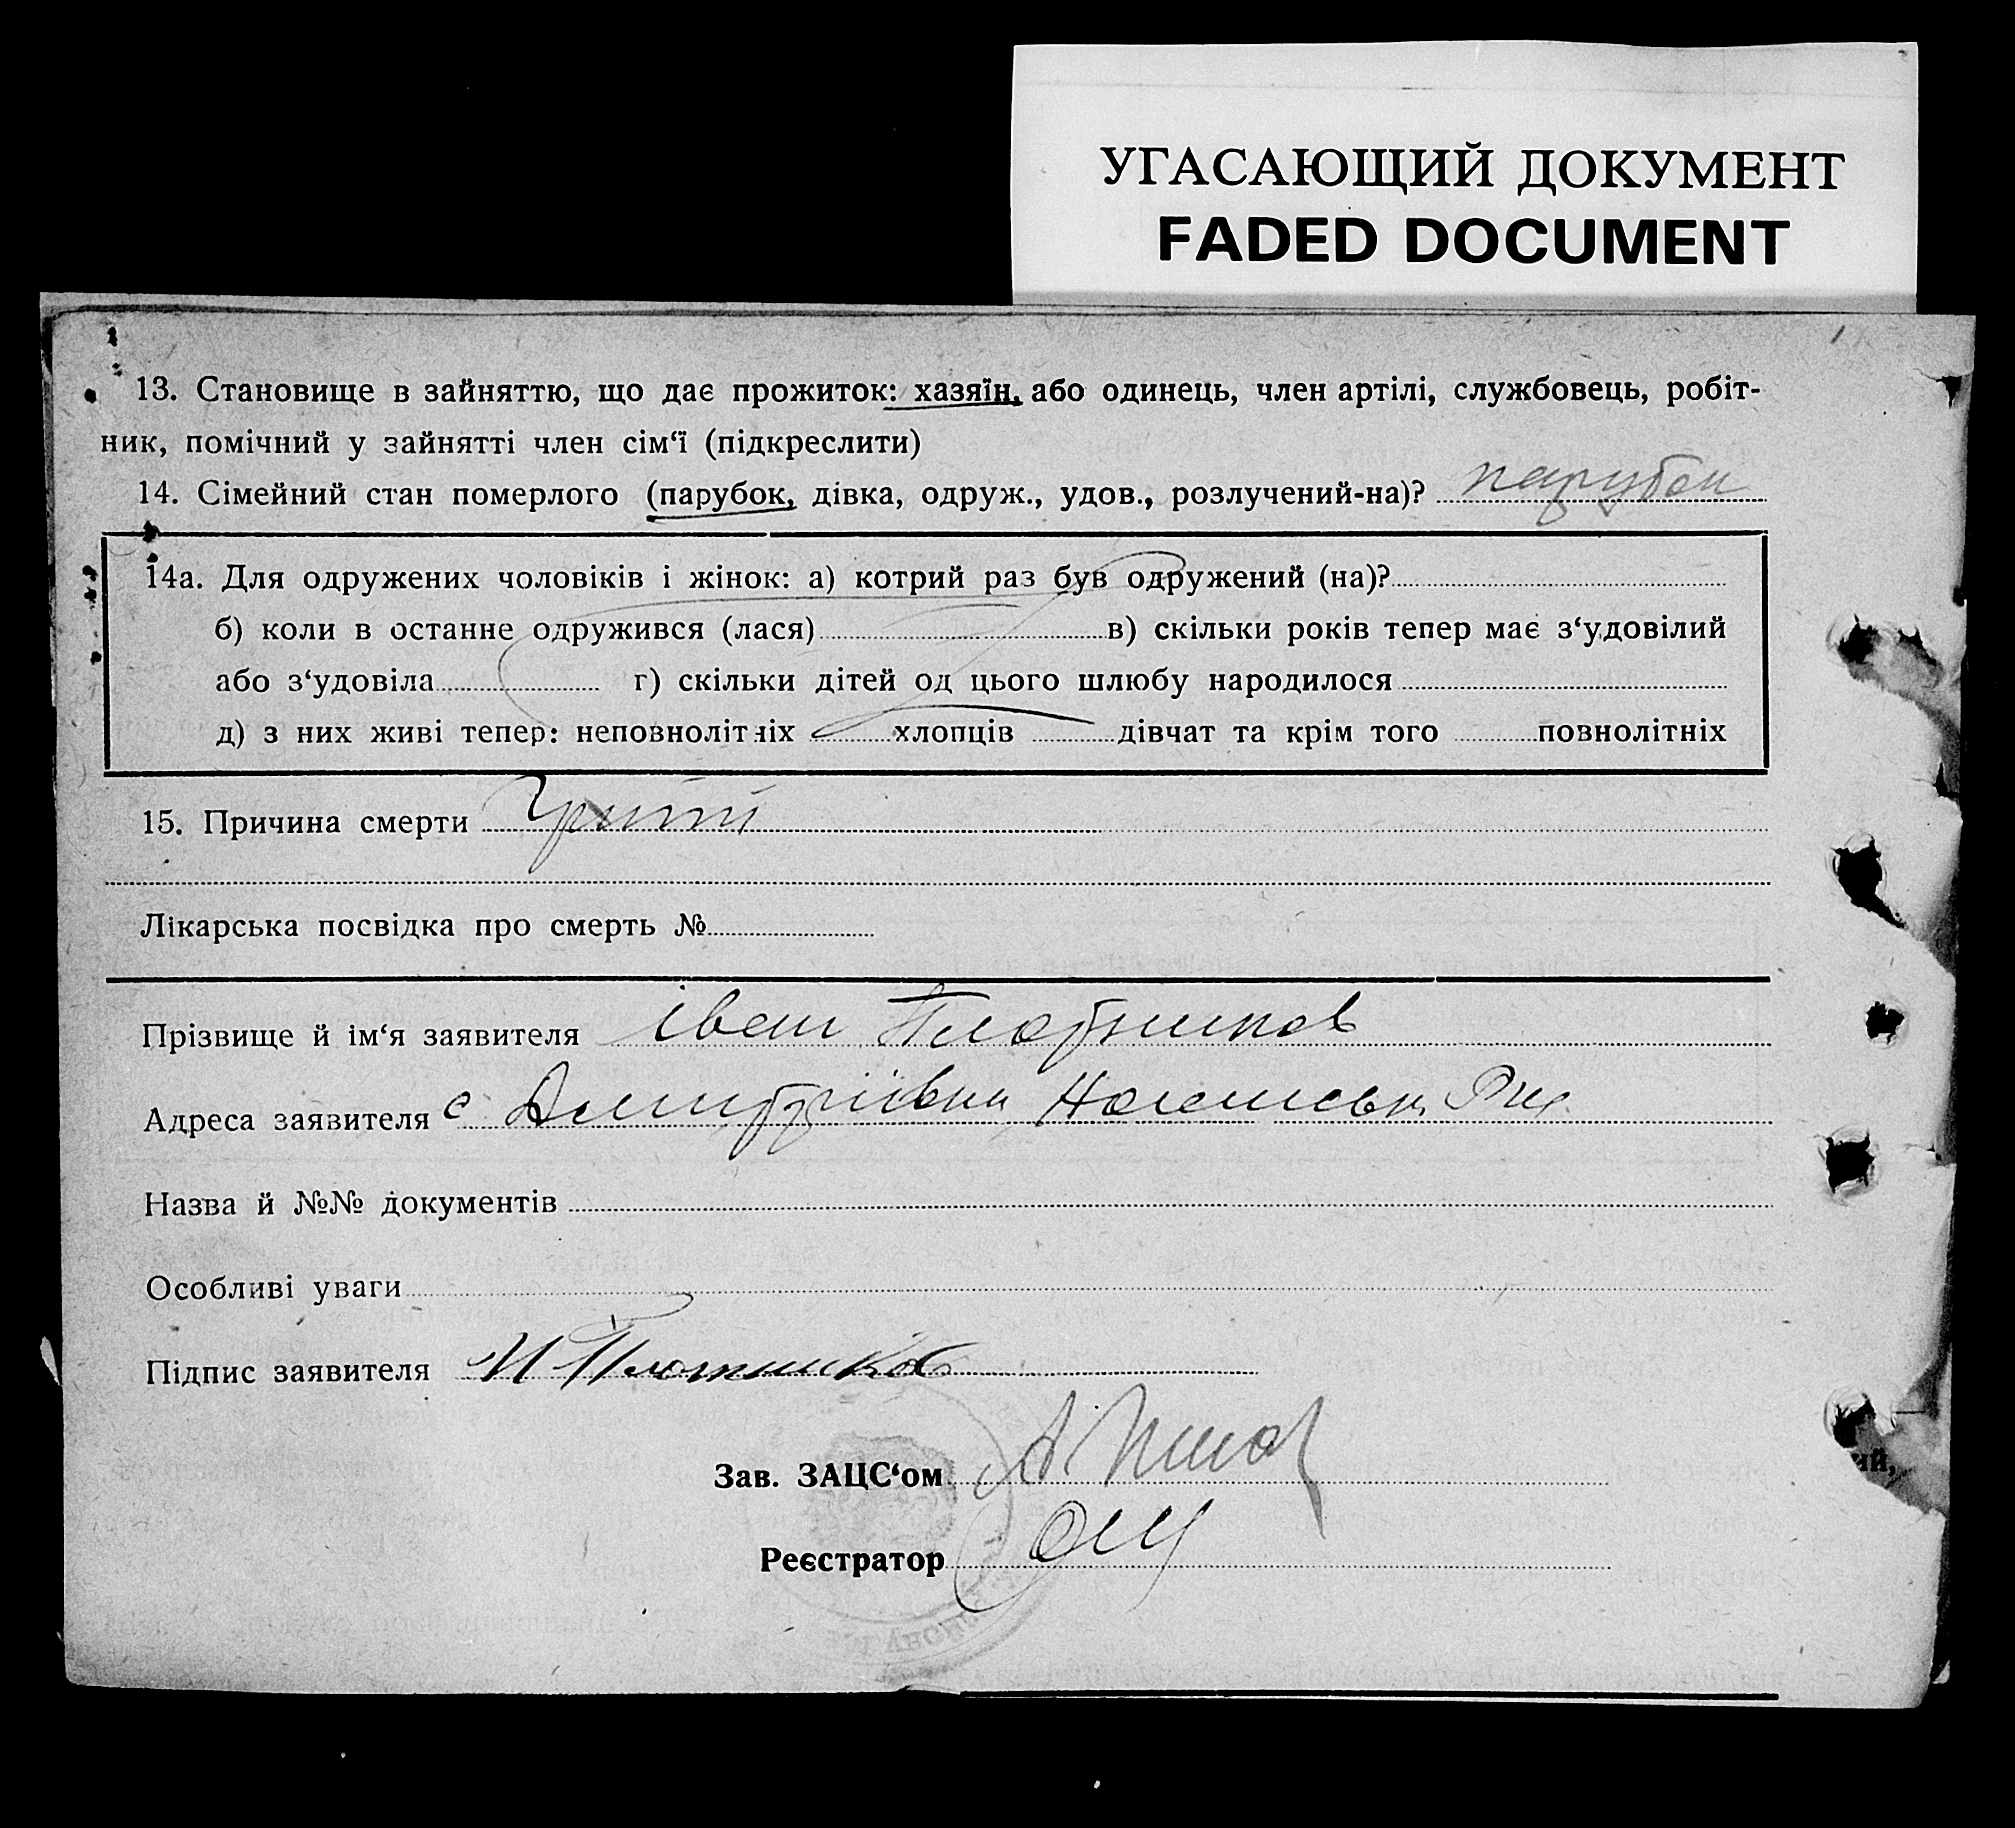 УГАСАЮЩИЙ ДОКУМЕНТ
FADED DOCUMENT
13. Становище в зайняттю, що дає прожиток: хазяїн, або одинець, член артілі, службовець, робіт-
ник, помічний у зайнятті член сім‘ї (підкреслити)
14. Сімейний стан померлого (парубок, дівка, одруж., удов., розлучений-на)? парубок
14а. Для одружених чоловіків і жінок: а) котрий раз був одружений (на)?
б) коли в останне одружився (лася) в) скільки років тепер має з‘удовілий
або з‘удовіла г) скільки дітей од цього шлюбу народилося
д) з них живі тепер: неповнолітніх хлопців дівчат та крім того повнолітніх
15. Причина смерти Грипп
Лікарська посвідка про смерть №
Прізвище й ім‘я заявителя Іван Плотников
Адреса заявителя с Дмитріівки
Назва й №№ документів
Особливі уваги
Підпис заявителя И Плотников
Зав. ЗАЦС‘ом
Реєстратор